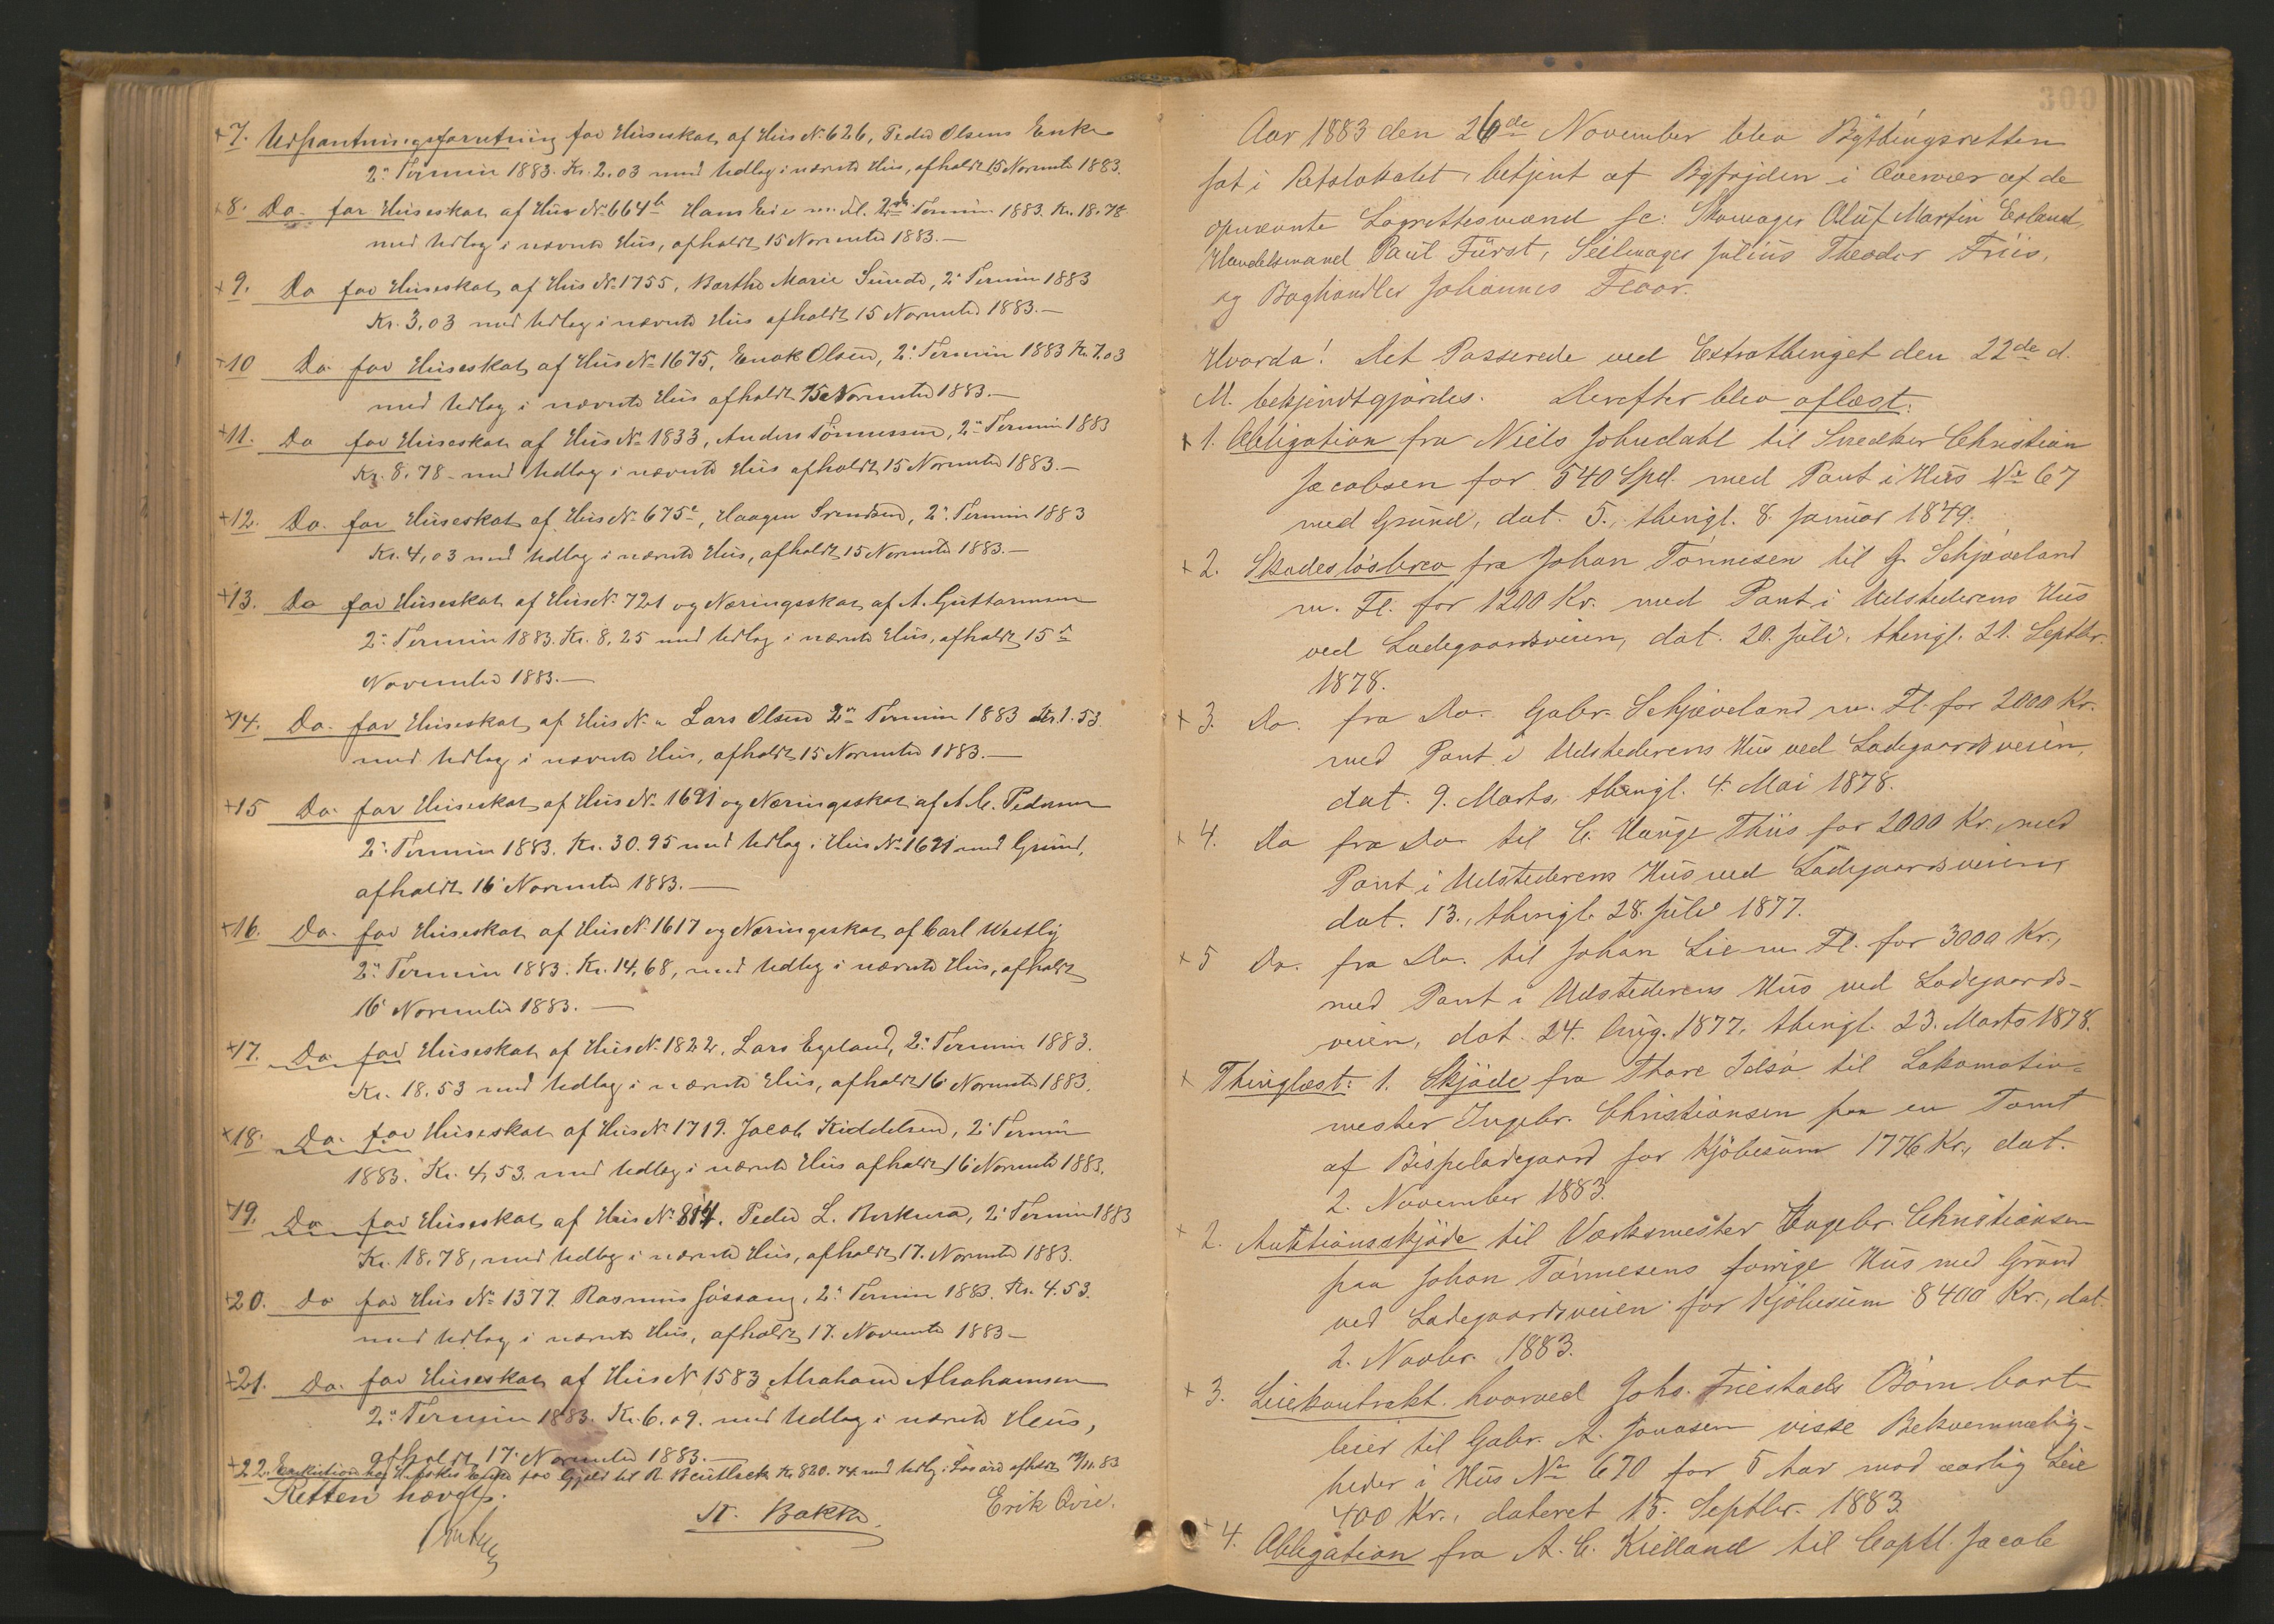 +7. Udpantningsforretning for Huseskat af Hus No 626, Peder Olsens Enke
2den Termin 1883. Kr. 2.03 med Udlæg i nævnte Hus, afholdt 15 November 1883.
+8. Do. for Huseskat af Hus No 664b Hans Eie m. Fl. 2den Termin 1883. Kr. 18.78
med Udlæg i nævnte Hus, afholdt 15 November 1883.—
+9. Do for Huseskat af Hus No 1755, Barthe Marie Sunde, 2den Termin 1883
Kr. 3,03 med Udlæg i nævnte Hus afholdt 15 November 1883.—
+10 Do for Huseskat af Hus No 1675, Enok Olsen, 2den Termin 1883 Kr. 7.03
med Udlæg i nævnte Hus afholdt 15 November 1883.—
+11. Do for Huseskat af Hus No 1833, Anders Tönnessen, 2den Termin 1883
Kr. 8,78 - med Udlæg i nævnte Hus afholdt 15 November 1883.—
+12. Do. for Huseskat af Hus No 675e, Haagen Svendsen, 2den Termin 1883
Kr. 4,03 med Udlæg i nævnte Hus, afholdt 15 November 1883.—
+13. Do for Huseskat af Hus No 721 og Næringsskat af A. Guttormsen
2den Termin 1883. Kr. 8,25 med Udlæg i nævnte Hus, afholdt 15de
November 1883.—
+14. Do. for Huseskat af Hus No " Lars Olsen 2den Termin 1883 Kr. 1.53
med Udlæg i nævnte Hus, afholdt 15 November 1883.—
+15 Do. for Huseskat af Hus No 1691 og Næringsskat af A. C. Pedersen
2den Termin 1883. Kr. 30.95 med Udlæg i Hus No 1691 med Grund,
afholdt 16 November 1883.—
+16. Do. for Huseskat af Hus No 1617 og Næringsskat af Carl Westly
2den Termin 1883. Kr. 14,68, med Udlæg i nævnte Hus, afholdt
16 November 1883.—
+17. Do for Huseskat af Hus No 1822, Lars Egeland, 2den Termin 1883.
Kr. 18,53 med Udlæg i nævnte Hus, afholdt 16 November 1883.
+18. Do. for Huseskat af Hus No 1719. Jacob Kiddelsen, 2den Termin
1883. Kr. 4,53. med Udlæg i nævnte Hus afholdt 16 November 1883.
+19. Do for Huseskat af Hus No 814. Peder L. 2den Termin 1883
Kr. 18,78, med Udlæg i nævnte Hus, afholdt 17. November 1883.
+20. Do for Hus No 1377. Rasmus Jössang, 2den Termin 1883. Kr. 4.53.
med Udlæg i nævnte Hus, afholdt 17. November 1883—
+21. Do. for Huseskat af Hus No 1583 Abraham Abrahamsen
2den Termin 1883. Kr. 6.09. med Udlæg i nævnte Hus,
afholdt 17. November 1883.—
+22. Exekution hos for Gjeld til Kr 820.74 med Udlæg i Løsøre afholdt 19/11.83
Retten hævet.
N. Bakke. Erik Qvie.
300
Aar 1883 den 26de November blev Bythingsretten
sat i Retslokalet, betjent af Byfogden i Overvær af de
opnævnte Lagrettesmænd sc: Skomager Oluf Martin Erland,
Handelsmand Paul Fürst, Seilmager Julius Theodor Friis,
og Boghandler Johannes Floor.
Hvorda! Det Passerede ved Extrathinget den 22de d.
M. bekjendtgjordes. Derefter blev aflæst:
+ 1. Obligation fra Niels Johndahl til Snedker Christian
Jacobsen for 540 Spd. med Pant i Hus No 67
med Grund, dat. 5., thingl. 8. Januar 1849.
+ 2. Skadeslösbrev fra Johan Tönnesen til G. Schjæveland
m. Fl. for 1200 Kr. med Pant i Udstederens Hus
ved Ladegaardsveien, dat. 20. Juli, thingl. 21. Septbr.
1878.
+ 3. Do. fra Do. Gabr. Schjæveland m. Fl. for 2000 Kr.
med Pant i Udstederens Hus ved Ladegaardsveien,
dat. 9. Marts, thingl. 4. Mai 1878.
+ 4. Do fra Do til C. Hauge Thiis for 2000 Kr., med
Pant i Udstederens Hus ved Ladegaardsveien,
dat. 13., thingl. 28. Juli 1877.
+ 5 Do. fra Do. til Johan Lie m. Fl. for 3000 Kr.,
med Pant i Udstederens Hus ved Ladegaards-
veien, dat. 24. Aug. 1877, thingl. 23. Marts 1878.
+ Thinglæst: 1. Skjöde fra Thore Idsö til Lokomotiv-
mester Ingebr. Christiansen paa en Tomt
af Bispeladegaard for Kjöbesum 1776 Kr., dat.
2. November 1883.
+ 2. Auktionsskjöde til Værksmester Engebr. Christiansen
paa Johan Tönnesens forrige Hus med Grund
ved Ladegaardsveien for Kjöbesum 8400 Kr., dat.
2. Novbr. 1883.
+ 3. Leiekontrakt hvorved Johs. Friestads Börn bort-
leier til Gabr. A. Jonasen visse Bekvemmelig-
heder i Hus No 670 for 5 Aar mod aarlig Leie
400 Kr., dateret 15. Septbr. 1883.
+ 4. Obligation fra A. C. Kielland til Captl. Jacob